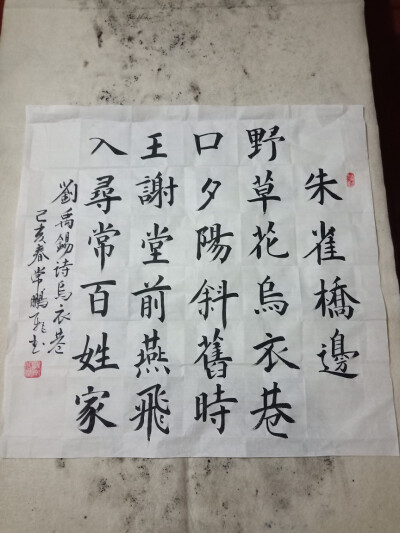 朱雀橋邊
野草花烏衣巷
口夕陽斜舊時
王謝堂前燕飛
入尋常百姓家
劉禹錫诗烏衣巷
己亥春常鵬书